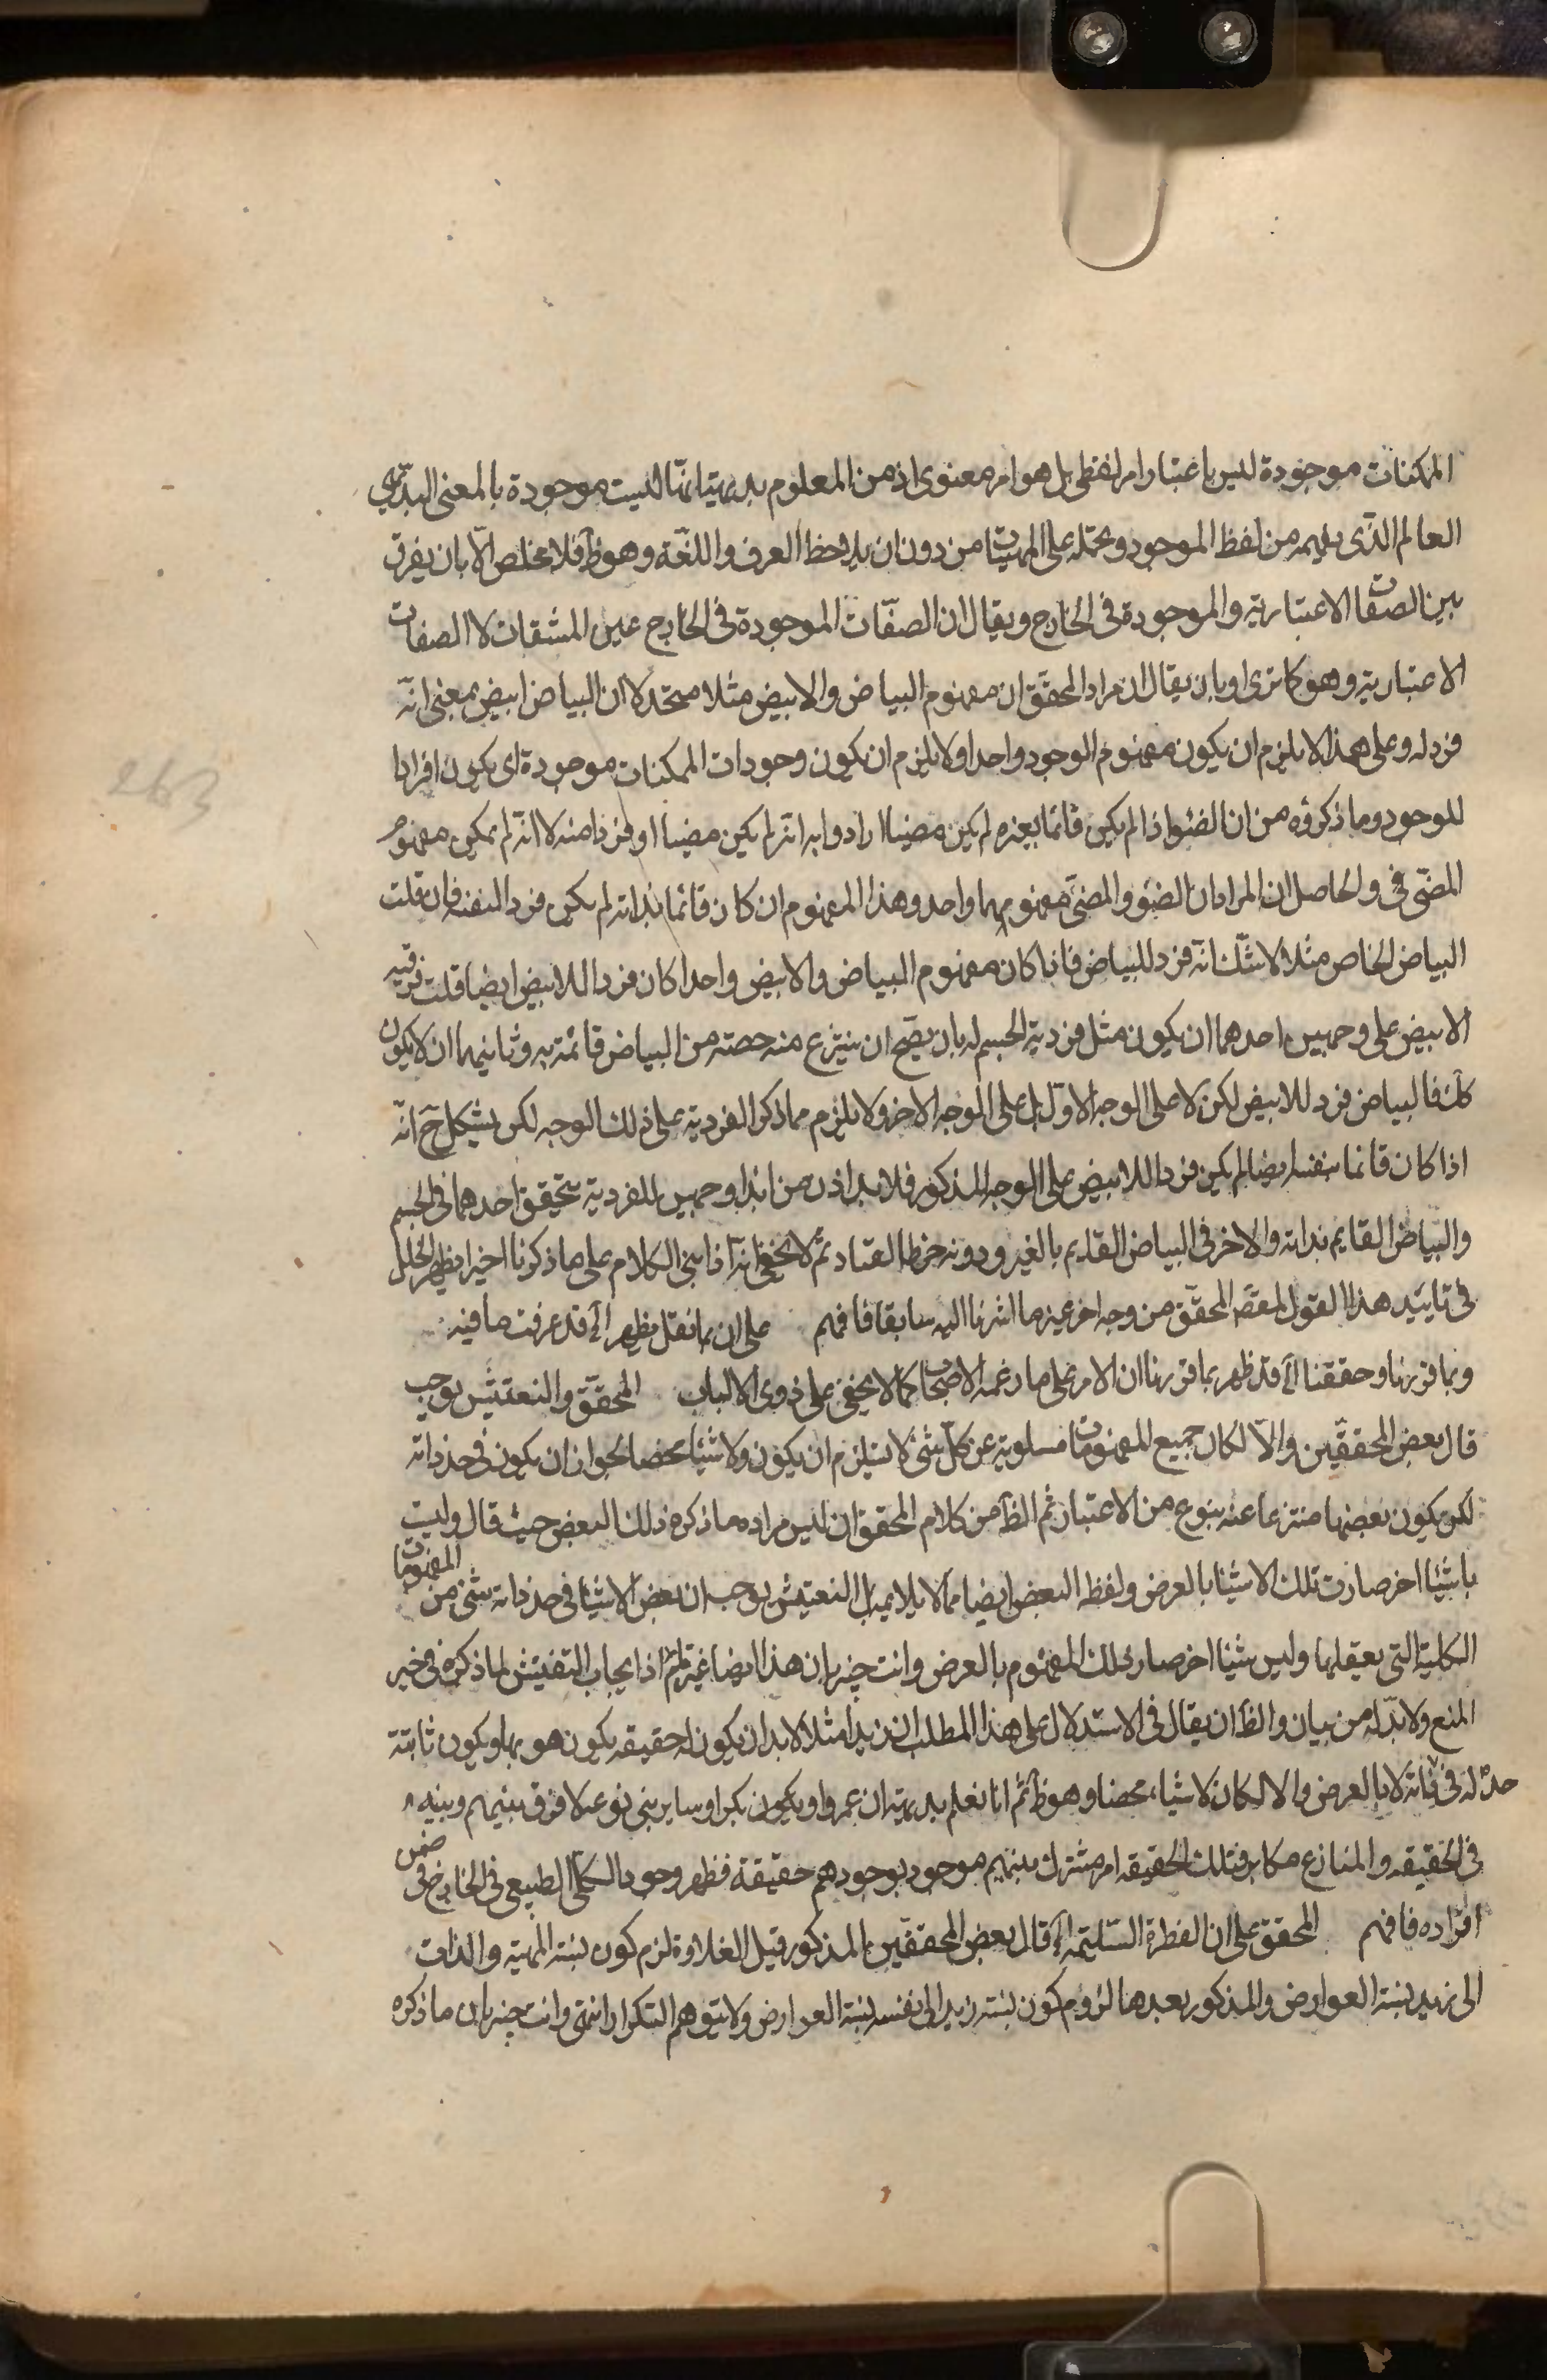 الممكنات موجودة ليس باعتبار امر لفظي بل هو امر معنوي اذ من المعلوم بديهة انها ليست موجودة بالمعنى البديهي
العالم الذي يفهم من لفظ الموجود ويحمله على المهيات من دون ان يلاحظ العرف واللغة وهو ظ فلا مخلص الا بان يفرق
بين الصفات الاعتبارية والموجودة في الخارج ويقال ان الصفات الموجودة في الخارج عين المشتقات لا الصفات
الاعتبارية وهو كما ترى او بان يقال ان مراد المحقق ان مفهوم البياض والابيض مثلا متحد لا ان البياض ابيض بمعنى انه
فرد له وعلى هذا لا يلزم ان يكون مفهوم الوجود واحدا ولا يلزم ان يكون وجودات الممكنات موجودة اي يكون افرادا
للوجود وما ذكروه من ان الضوء اذا لم يكن قائما بغيره لم يكن مضيئا ارادوا به انه لم يكن مضيئا او فردا منه لا انه لم يكن مفهوم
المضيء في والحاصل ان المراد ان الضوء والمضيء مفهومهما واحد وهذا المفهوم ان كان قائما بذاته لم يكن فردا لنفسه فان قلت
البياض الخاص مثلا لا شك انه فرد للبياض فاذا كان مفهوم البياض والابيض واحدا كان فردا للابيض ايضا قلت فردية
الابيض على وجهين احدهما ان يكون مثل فردية الجسم له بان يصح ان ينتزع منه حصته من البياض قائمة به وثانيهما ان لا يكون
كك فالبياض فرد للابيض لكن لا على الوجه الاول بل على الوجه الاخر ولا يلزم مما ذكر الفردية على ذلك الوجه لكن يشكل ح انه
اذا كان قائما بنفسه ايضا لم يكن فردا للابيض على الوجه المذكور فلا بد اذن من ابداء وجهين للفردية يتحقق احدهما في الجسم
والبياض القايم بذاته والاخر في البياض القايم بالغير ودونه خرط القتاد ثم لا يخفى انه اذا بنى الكلام على ما ذكرنا اخيرا يظهر الخلل
في تاييد هذا القول لمقصد المحقق من وجه اخر غير ما اشرنا اليه سابقا فافهم على ان ما نقل يظهر اه قد عرفت ما فيه
وبما قررنا وحققنا اه قد ظهر بما قررنا ان الامر على ما زعمه الاصحاب كما لا يخفى على ذوي الالباب المحقق والتفتيش يوجب
قال بعض المحققين والا لكان جميع المفهومات مسلوبة عن كل شئ لا يستلزم ان يكون ولا شيئا محضا لجواز ان يكون في حد ذاته
لكن يكون بعضها منتزعا عنه بنوع من الاعتبار ثم الظ من كلام المحقق ان ليس مراده ما ذكره ذلك البعض حيث قال وليت
باشياء اخر صارت تلك الاشياء بالعرض ولفظه البعض ايضا مما لا يلايمه بل التفتيش يوجب ان بعض الاشياء في حد ذاته شئ من المفهومات
الكلية التي يعقلها وليس شيئا اخر صار ذلك المفهوم بالعرض وانت خبير بان هذا ايضا غير تام اذ ايجاب التفتيش لما ذكره في خير
المنع ولا بد له من بيان والظ ان يقال في الاستدلال على هذا المطلب ان زيدا مثلا لا بد ان يكون له حقيقة يكون هو بها ويكون ثابتة
له في حد ذاته لا بالعرض والا لكان لا شياء محضا وهو ظ ثم انا نعلم بديهة ان عمروا ويكون بكرا وساير بني نوعه لا فرق بينهم وبينه
في الحقيقة والمنازع مكابر فتلك الحقيقة امر مشترك بينهم موجود بوجودهم حقيقة فظهر وجود الكلي الطبيعي في الخارج في ضمن
افراده فافهم المحقق على ان الفطرة السليمة اه قال بعض المحققين المذكور قبل العلاوة لزم كون نسبة المهية والذات
الى زيد نسبة العوارض والمذكور بعدها لزوم كون نسبة زيد الى نفسه نسبة العوارض ولا يتوهم التكرار انتهى وانت خبير بان ما ذكره